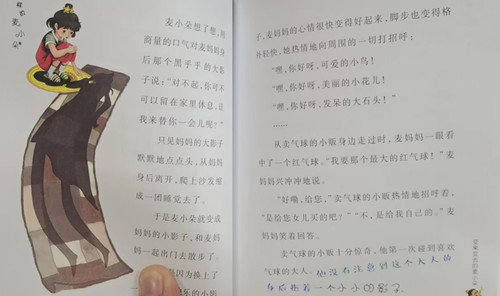 麦小朵
麦小朵想了想，用
商量的口气对麦妈妈身
后那个黑乎乎的大影
子说：“对不起，你可不
可以留在家里休息，让
我来替你一会儿呢？”
只见妈妈的大影子
默默地点点头，从妈妈
身后离开，爬上沙发蜷
成一团睡觉了。
于是麦小朵就变成
妈妈的小影子，和麦妈
妈一起出门去散步了。
因为换上了
乐的小影
子，麦妈妈的心情很快变得好起来，脚步也变得格
外轻快，她热情地向周围的一切打招呼：
“嘿，你好呀，可爱的小鸟！
“嘿，你好呀，美丽的小花儿！
“嘿，你好呀，发呆的大石头！”
……
从卖气球的小贩身边走过时，麦妈妈一眼看
中了一个红气球。“我要那个最大的红气球！”麦
妈妈兴冲冲地说。
“好嘞，给您，”卖气球的小贩热情地招呼着，
“是给您女儿买的吧？”“不，是给我自己的。”麦
妈妈笑着回答。
卖气球的小贩十分惊奇，他第一次碰到喜欢
气球的大人。他没有注意到这个大人的
身后拖着一个小小的影子